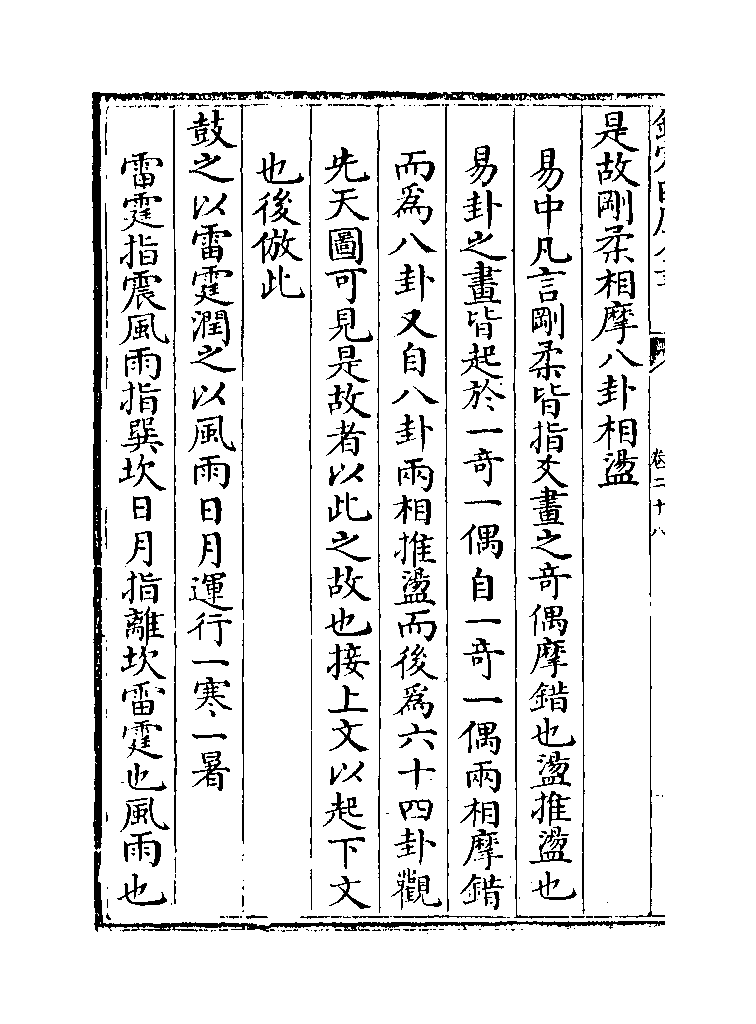 是故剛柔相摩八卦相盪
易中凡言剛柔皆指爻畫之奇偶摩錯也盪推盪也
易卦之畫皆起於一奇一偶自一奇一偶兩相摩錯
而為八卦又自八卦兩相推盪而後為六十四卦觀
先天圖可見是故者以此之故也接上文以起下文
也後倣此
鼓之以雷霆潤之以風雨日月運行一寒一暑
雷霆指震風雨指巽坎日月指離坎雷霆也風雨也
卷二十八